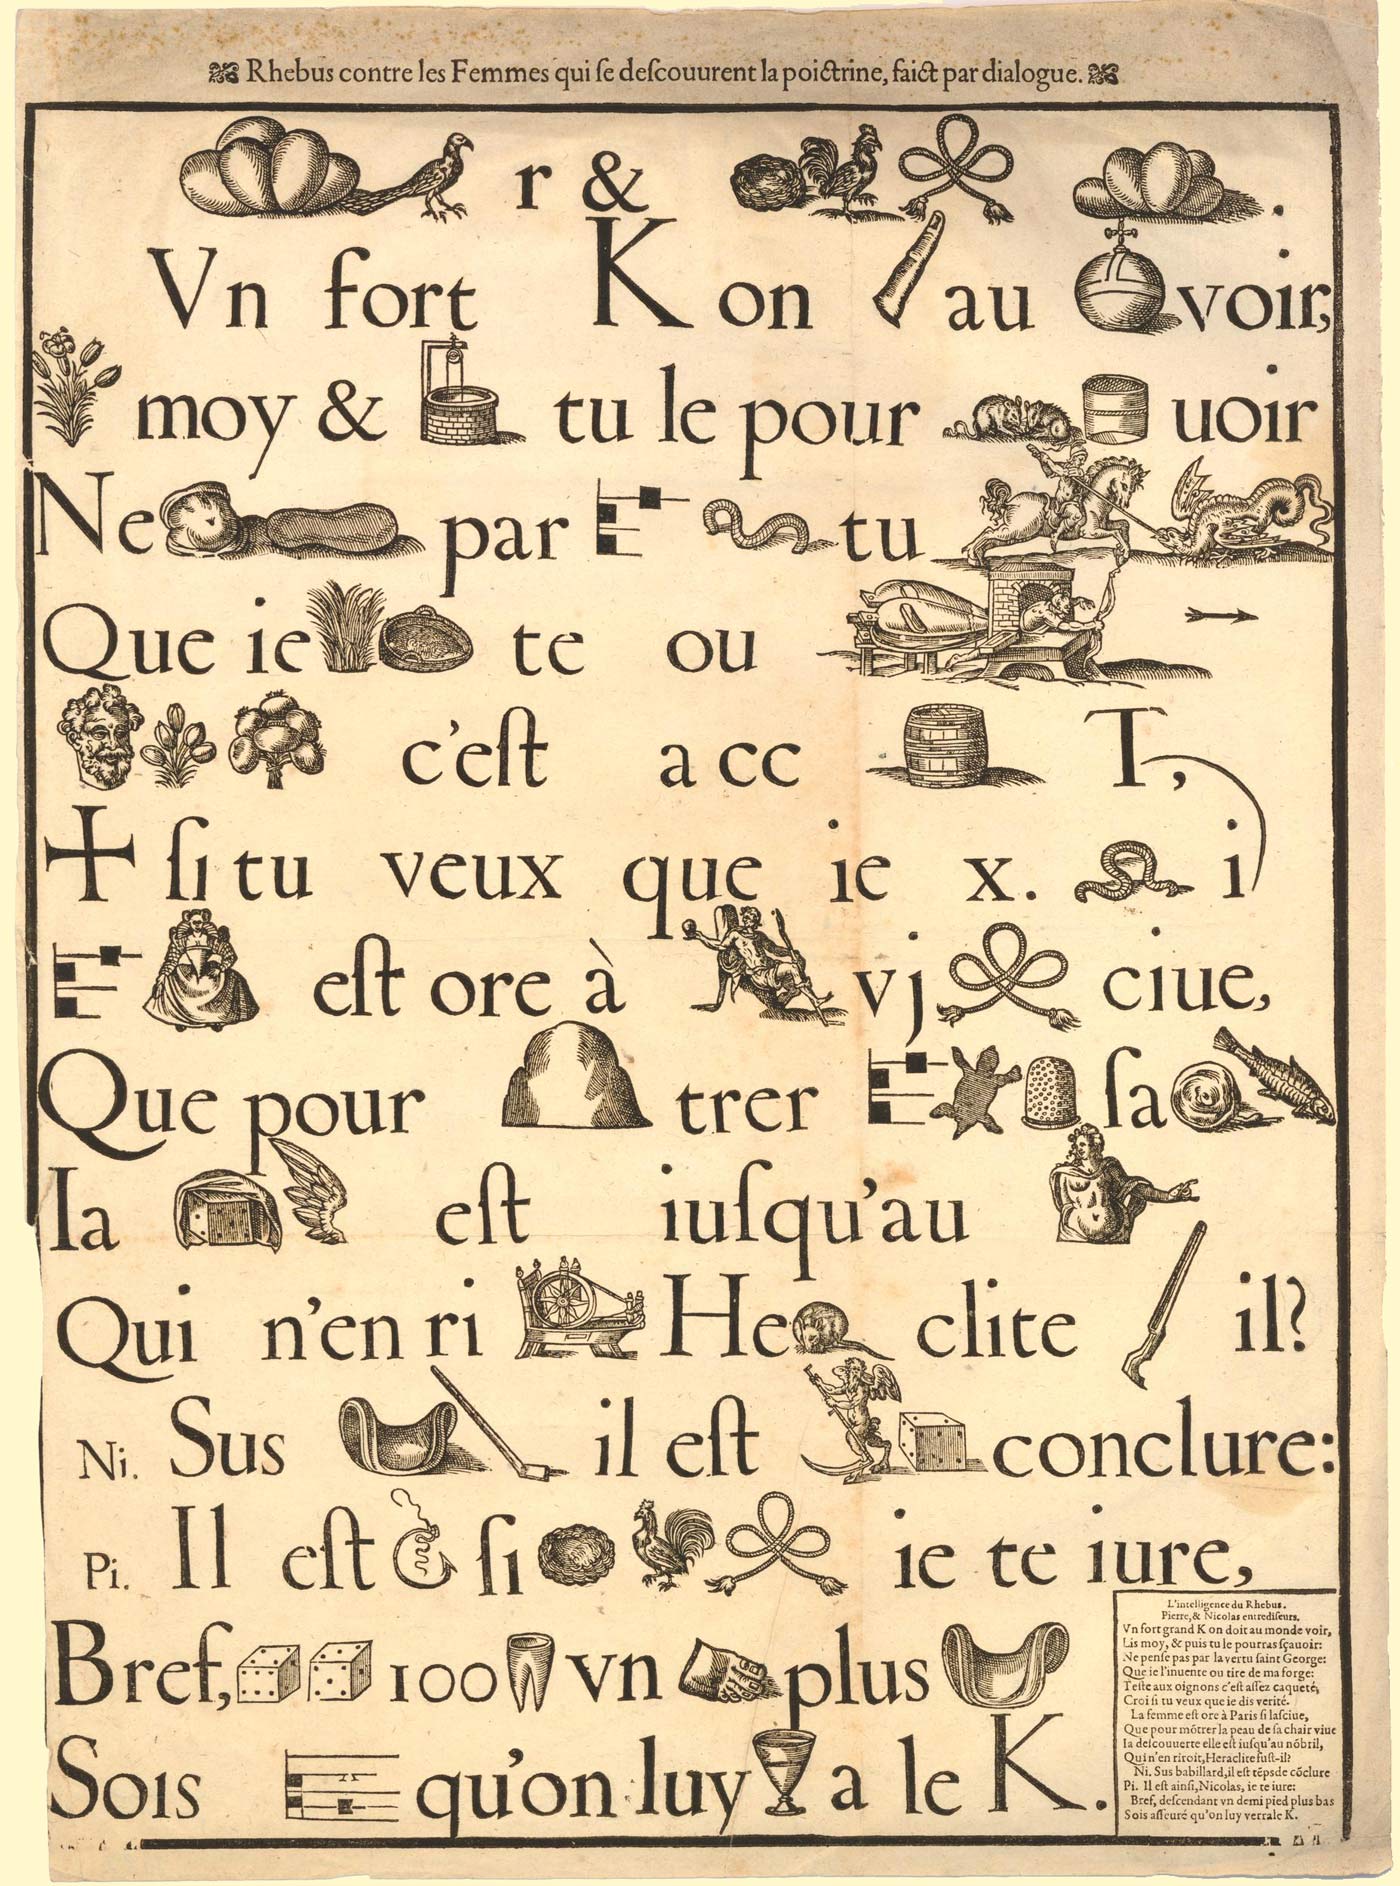 Rhebus contre les Femmes qui ſe deſcouurent la poictrine, faict par dialogue.
r & .
Vn fort K on au voir,
moy & tu le pour uoir
Ne par tu
Que ie te ou
c'eſt a cc T,
ſi tu veux que ie x. i
eſt ore à vj ciue,
Que pour trer ſa
Ia eſt iuſqu'au
Qui n'en ri He clite il?
Ni. Sus il eſt conclure:
Pi. Il eſt ſi ie te iure,
Bref, 100 vn plus
Sois qu'on luy a le K.
L'intelligence du Rhebus.
Pierre, & Nicolas entrediſeurs.
Vn fort grand K on doit au monde voir,
Lis moy, & puis tu le pourras ſçauoir:
Ne penſe pas par la vertu ſaint George:
Que ie l'inuente ou tire de ma forge:
Teſte aux oignons c'eſt aſſez caqueté,
Croi ſi tu veux que ie dis verité.
La femme eſt ore à Paris ſi laſciue,
Que pour mõtrer la peau de ſa chair viue
Ia deſcouuerte elle eſt iuſqu'au nõbril,
Qui n'en riroit, Heraclite fuſt-il?
Ni. Sus babillard, il eſt tẽps de cõclure
Pi. Il eſt ainſi, Nicolas, ie te iure:
Bref, deſcendant vn demi pied plus bas
Sois aſſeuré qu'on luy verra le K.